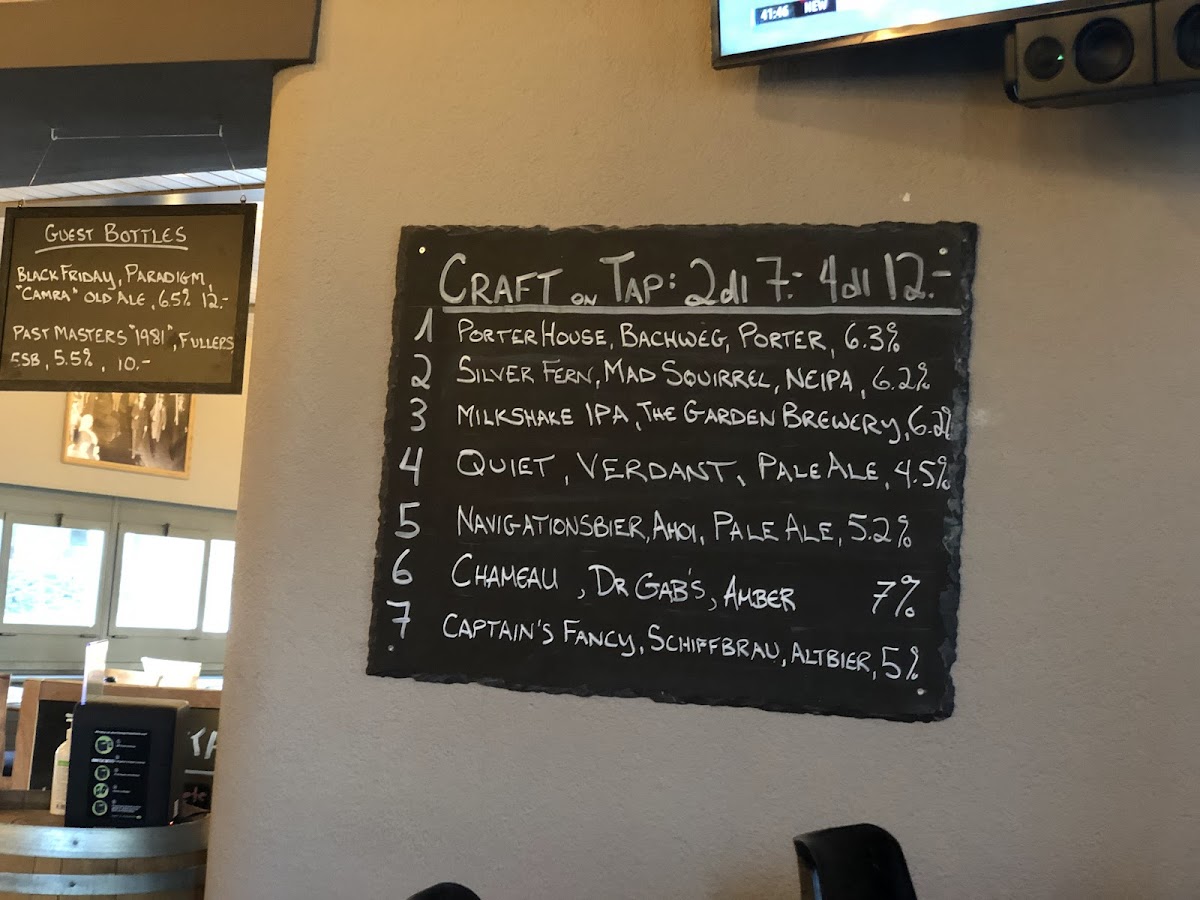 41:46 NEW
GUEST BOTTLES
BLACK FRIDAY, PARADIGM,
"CAMRA" OLD ALE, 6.5% 12.-
PAST MASTERS "1981", FULLERS
ESB, 5.5%, 10.-
CRAFT ON TAP: 2dl 7.- 4dl 12.-
1 PORTERHOUSE, BACHWEG, PORTER, 6.3%
2 SILVER FERN, MAD SQUIRREL, NEIPA, 6.2%
3 MILKSHAKE IPA, THE GARDEN BREWERY, 6.2%
4 QUIET, VERDANT, PALE ALE, 4.5%
5 NAVIGATIONSBIER, AHOI, PALE ALE, 5.2%
6 CHAMEAU, DR GAB'S, AMBER 7%
7 CAPTAIN'S FANCY, SCHIFFBRAU, ALTBIER, 5%